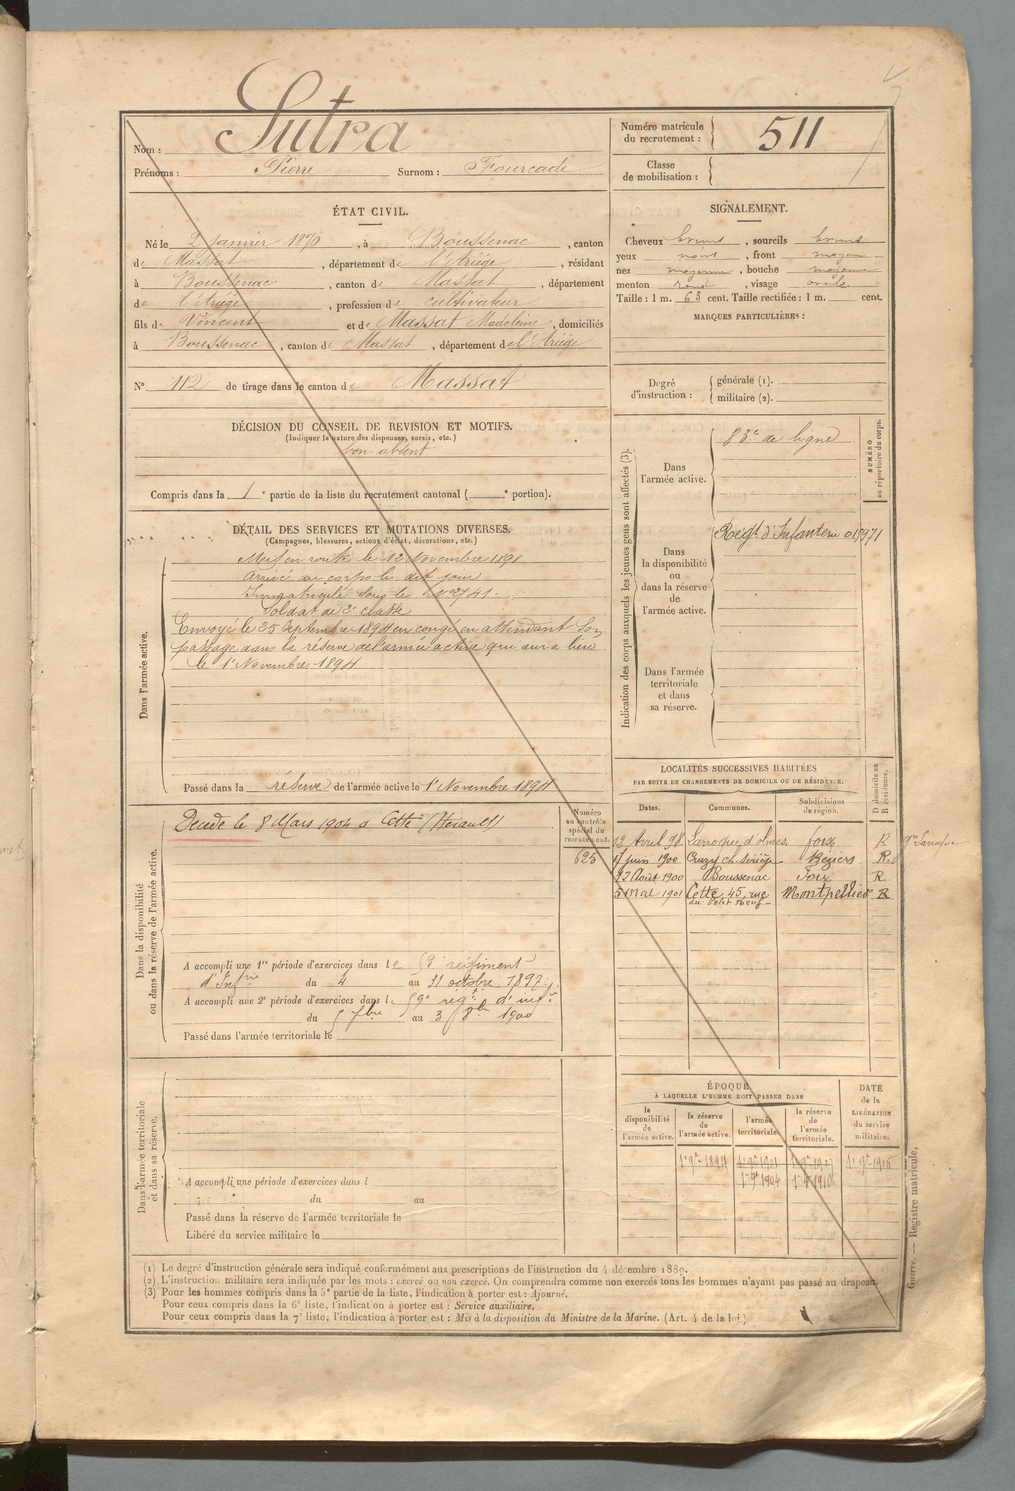 Nom : Sutra
Prénoms : Pierre Surnom : Fourcade
Numéro matricule du recrutement : 511
Classe de mobilisation :
ÉTAT CIVIL.
Né le 2 janvier 1870, à Boussenac, canton
de Massat, département de l'Ariége, résidant
à Boussenac, canton de Massat, département
de l'Ariége, profession de cultivateur
fils de Vincent et de Massat Madeleine, domiciliés
à Boussenac, canton de Massat, département de l'Ariége
N° 112 de tirage dans le canton de Massat
SIGNALEMENT.
Cheveux bruns, sourcils bruns
yeux noirs, front moyen
nez moyenne, bouche moyenne
menton rond, visage ovale
Taille : 1 m. 63 cent. Taille rectifiée : 1 m. cent.
MARQUES PARTICULIÈRES :
Degré d'instruction : générale (1).
militaire (2).
DÉCISION DU CONSEIL DE REVISION ET MOTIFS.
(Indiquer la nature des dispenses, sursis, etc.)
bon absent
Compris dans la 1e partie de la liste du recrutement cantonal ( e portion).
DÉTAIL DES SERVICES ET MUTATIONS DIVERSES.
(Campagnes, blessures, actions d'éclat, décorations, etc.)
Dans l'armée active.
Mis en route le 12 Novembre 1891
arrivé au corps le dit jour
Immatriculé sous le N° 2741
Soldat de 2e classe
Envoyé le 25 Septembre 1894 en congé en attendant son
passage dans la réserve de l'armée active qui aura lieu
le 1er Novembre 1894
Passé dans la réserve de l'armée active le 1er Novembre 1894
Indication des corps auxquels les jeunes gens sont affectés (3).
NUMÉRO au répertoire du corps.
Dans l'armée active.
83e de ligne
Dans la disponibilité ou dans la réserve de l'armée active.
Régt d'Infanterie 015971
Dans l'armée territoriale et dans sa réserve.
Dans la disponibilité ou dans la réserve de l'armée active.
Décédé le 8 Mars 1904 à Cette (Hérault)
Numéro au contrôle spécial du recrutement.
625
A accompli une 1re période d'exercices dans le 59e régiment
d'Infrie du 4 au 31 octobre 1897
A accompli une 2e période d'exercices dans le 59e régt d'inf
du 5 7bre au 3 8bre 1900
Passé dans l'armée territoriale le
LOCALITÉS SUCCESSIVES HABITÉES
PAR SUITE DE CHANGEMENTS DE DOMICILE OU DE RÉSIDENCE.
Dates. Communes. Subdivisions de région. D domicile ou R résidence.
12 Avril 98 Larroque d'olmes foix R
juin 1900 Cruzy Béziers R.
22 Août 1900 Boussenac Foix R
5 Mai 1901 Cette 45, rue Montpellier R
du Pont neuf
Dans l'armée territoriale et dans sa réserve.
A accompli une période d'exercices dans l
du au
Passé dans la réserve de l'armée territoriale le
Libéré du service militaire le
ÉPOQUE
À LAQUELLE L'HOMME DOIT PASSER DANS
la disponibilité de l'armée active.
la réserve de l'armée active.
l'armée territoriale.
la réserve de l'armée territoriale.
DATE de la LIBÉRATION du service militaire.
1er 9re 1894
1er 9re 1904 1er 9re 1910
Guerre. — Registre matricule.
(1) Le degré d'instruction générale sera indiqué conformément aux prescriptions de l'instruction du 4 décembre 1889.
(2) L'instruction militaire sera indiquée par les mots : exercé ou non exercé. On comprendra comme non exercés tous les hommes n'ayant pas passé au drapeau.
(3) Pour les hommes compris dans la 5e partie de la liste, l'indication à porter est : Ajourné.
Pour ceux compris dans la 6e liste, l'indication à porter est : Service auxiliaire.
Pour ceux compris dans la 7e liste, l'indication à porter est : Mis à la disposition du Ministre de la Marine. (Art. 4 de la loi)